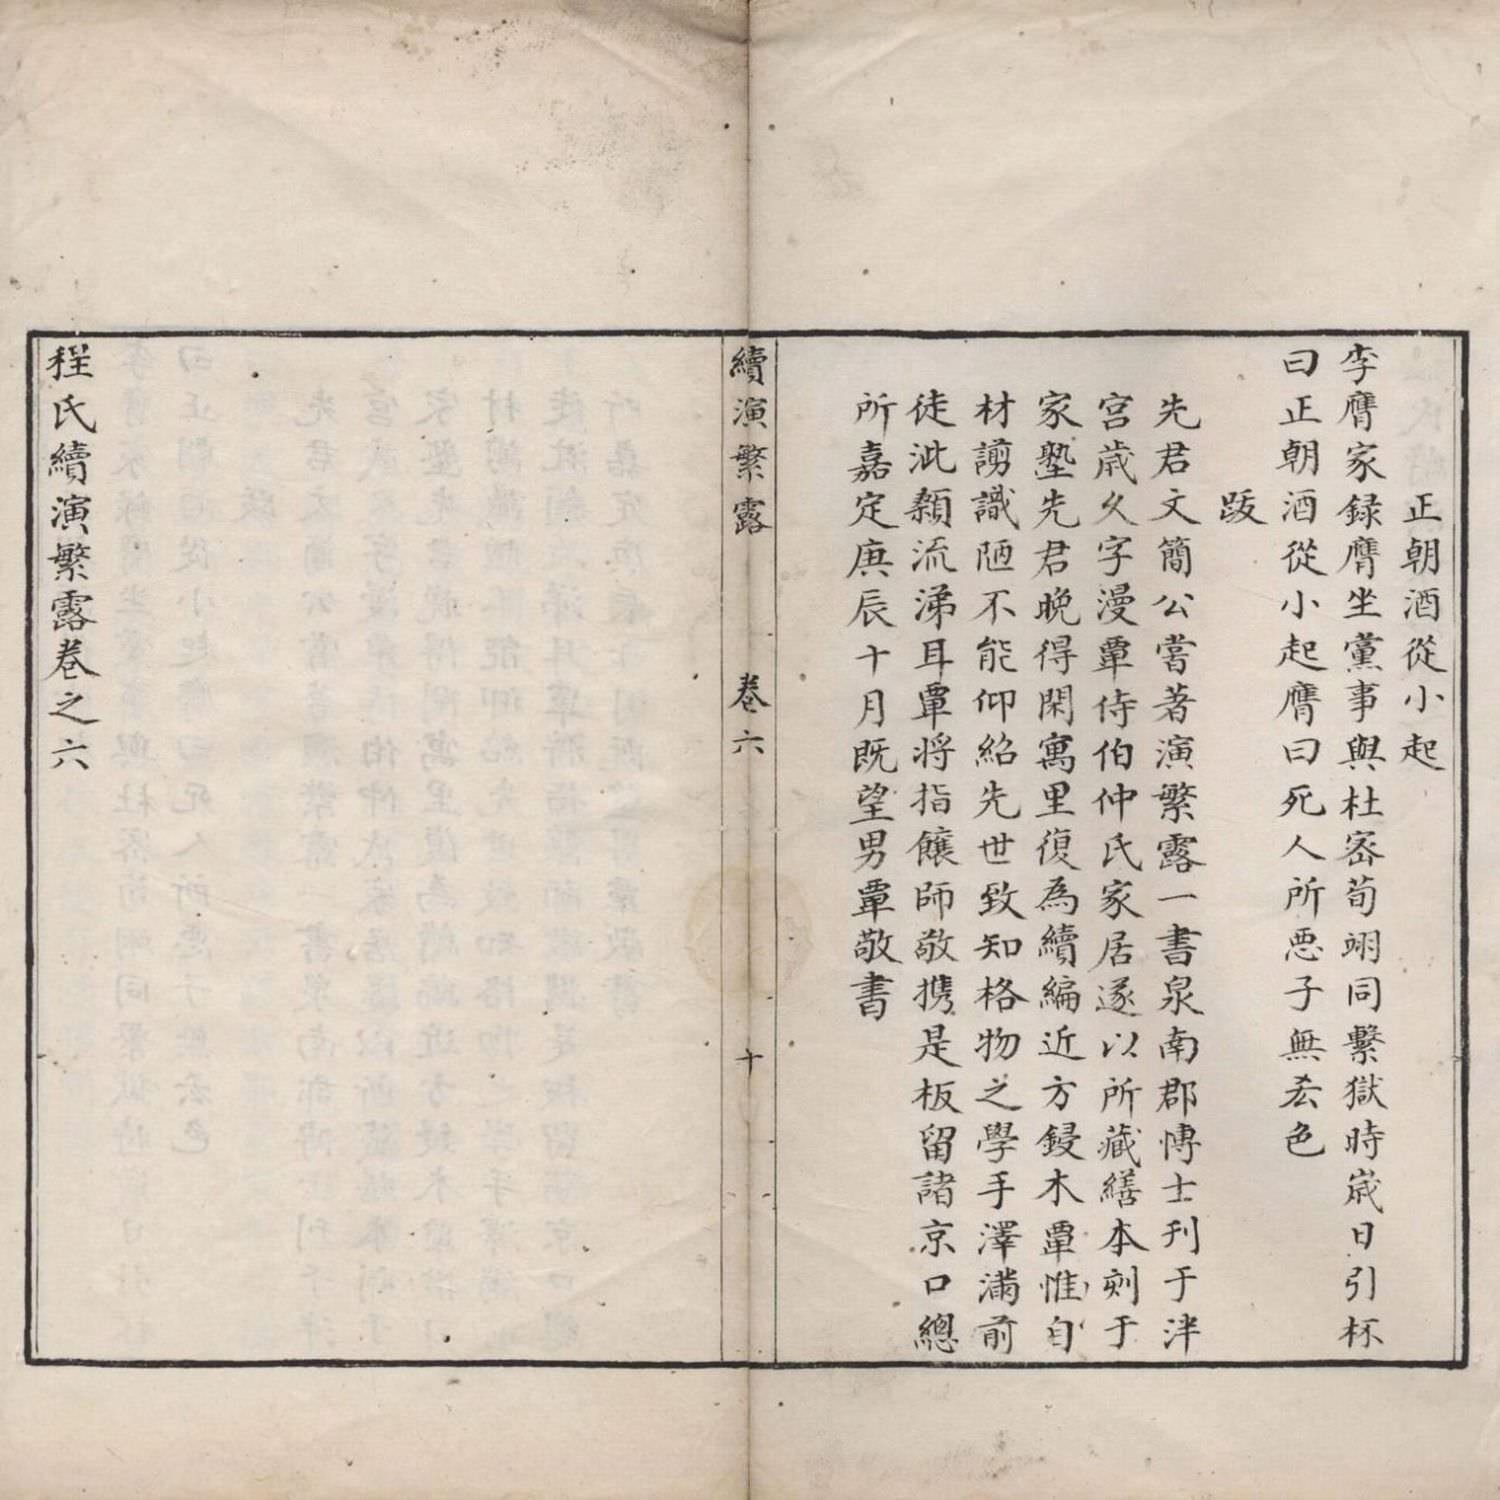 正朝酒從小起
李膺家録膺坐黨事與杜宻荀翊同繫獄時歲日引杯
曰正朝酒從小起膺曰死人所惡子無𠫤色
跋
先君文簡公嘗著演繁露一書泉南郡博士刋于泮
宮歳乆字漫覃侍伯仲氏家居遂以所藏繕本刻于
家塾先君晚得閑寓里復為續編近方鋟木覃惟自
材謭識陋不能仰紹先世致知格物之學手澤滿前
徒泚顙流涕耳覃將指饟師敬携是板留諸京口總
所嘉定庚辰十月既望男覃敬書
續演繁露 卷六 十
程氏續演繁露卷之六